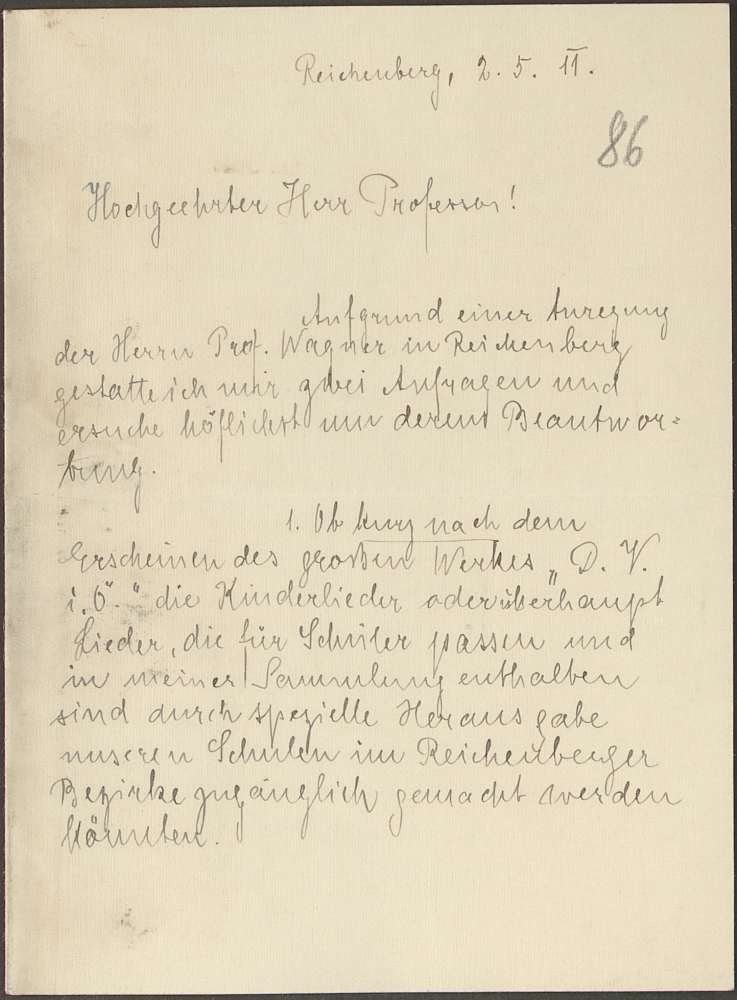 Reichenberg, 2. 5. 11.
86
Hochgeehrter Herr Professor!
Aufgrund einer Anregung
der Herrn Prof. Wagner in Reichenberg
gestatte ich mir zwei Anfragen und
ersuche höflichst um deren Beantwor=
tung.
1. Ob kurz nach dem
Erscheinen des großen Werkes „D. V.
i. Ö." die Kinderlieder oder überhaupt
Lieder, die für Schüler passen und
in meiner Sammlung enthalten
sind durch spezielle Herausgabe
unseren Schulen im Reichenberger
Bezirke zugänglich gemacht werden
könnten.